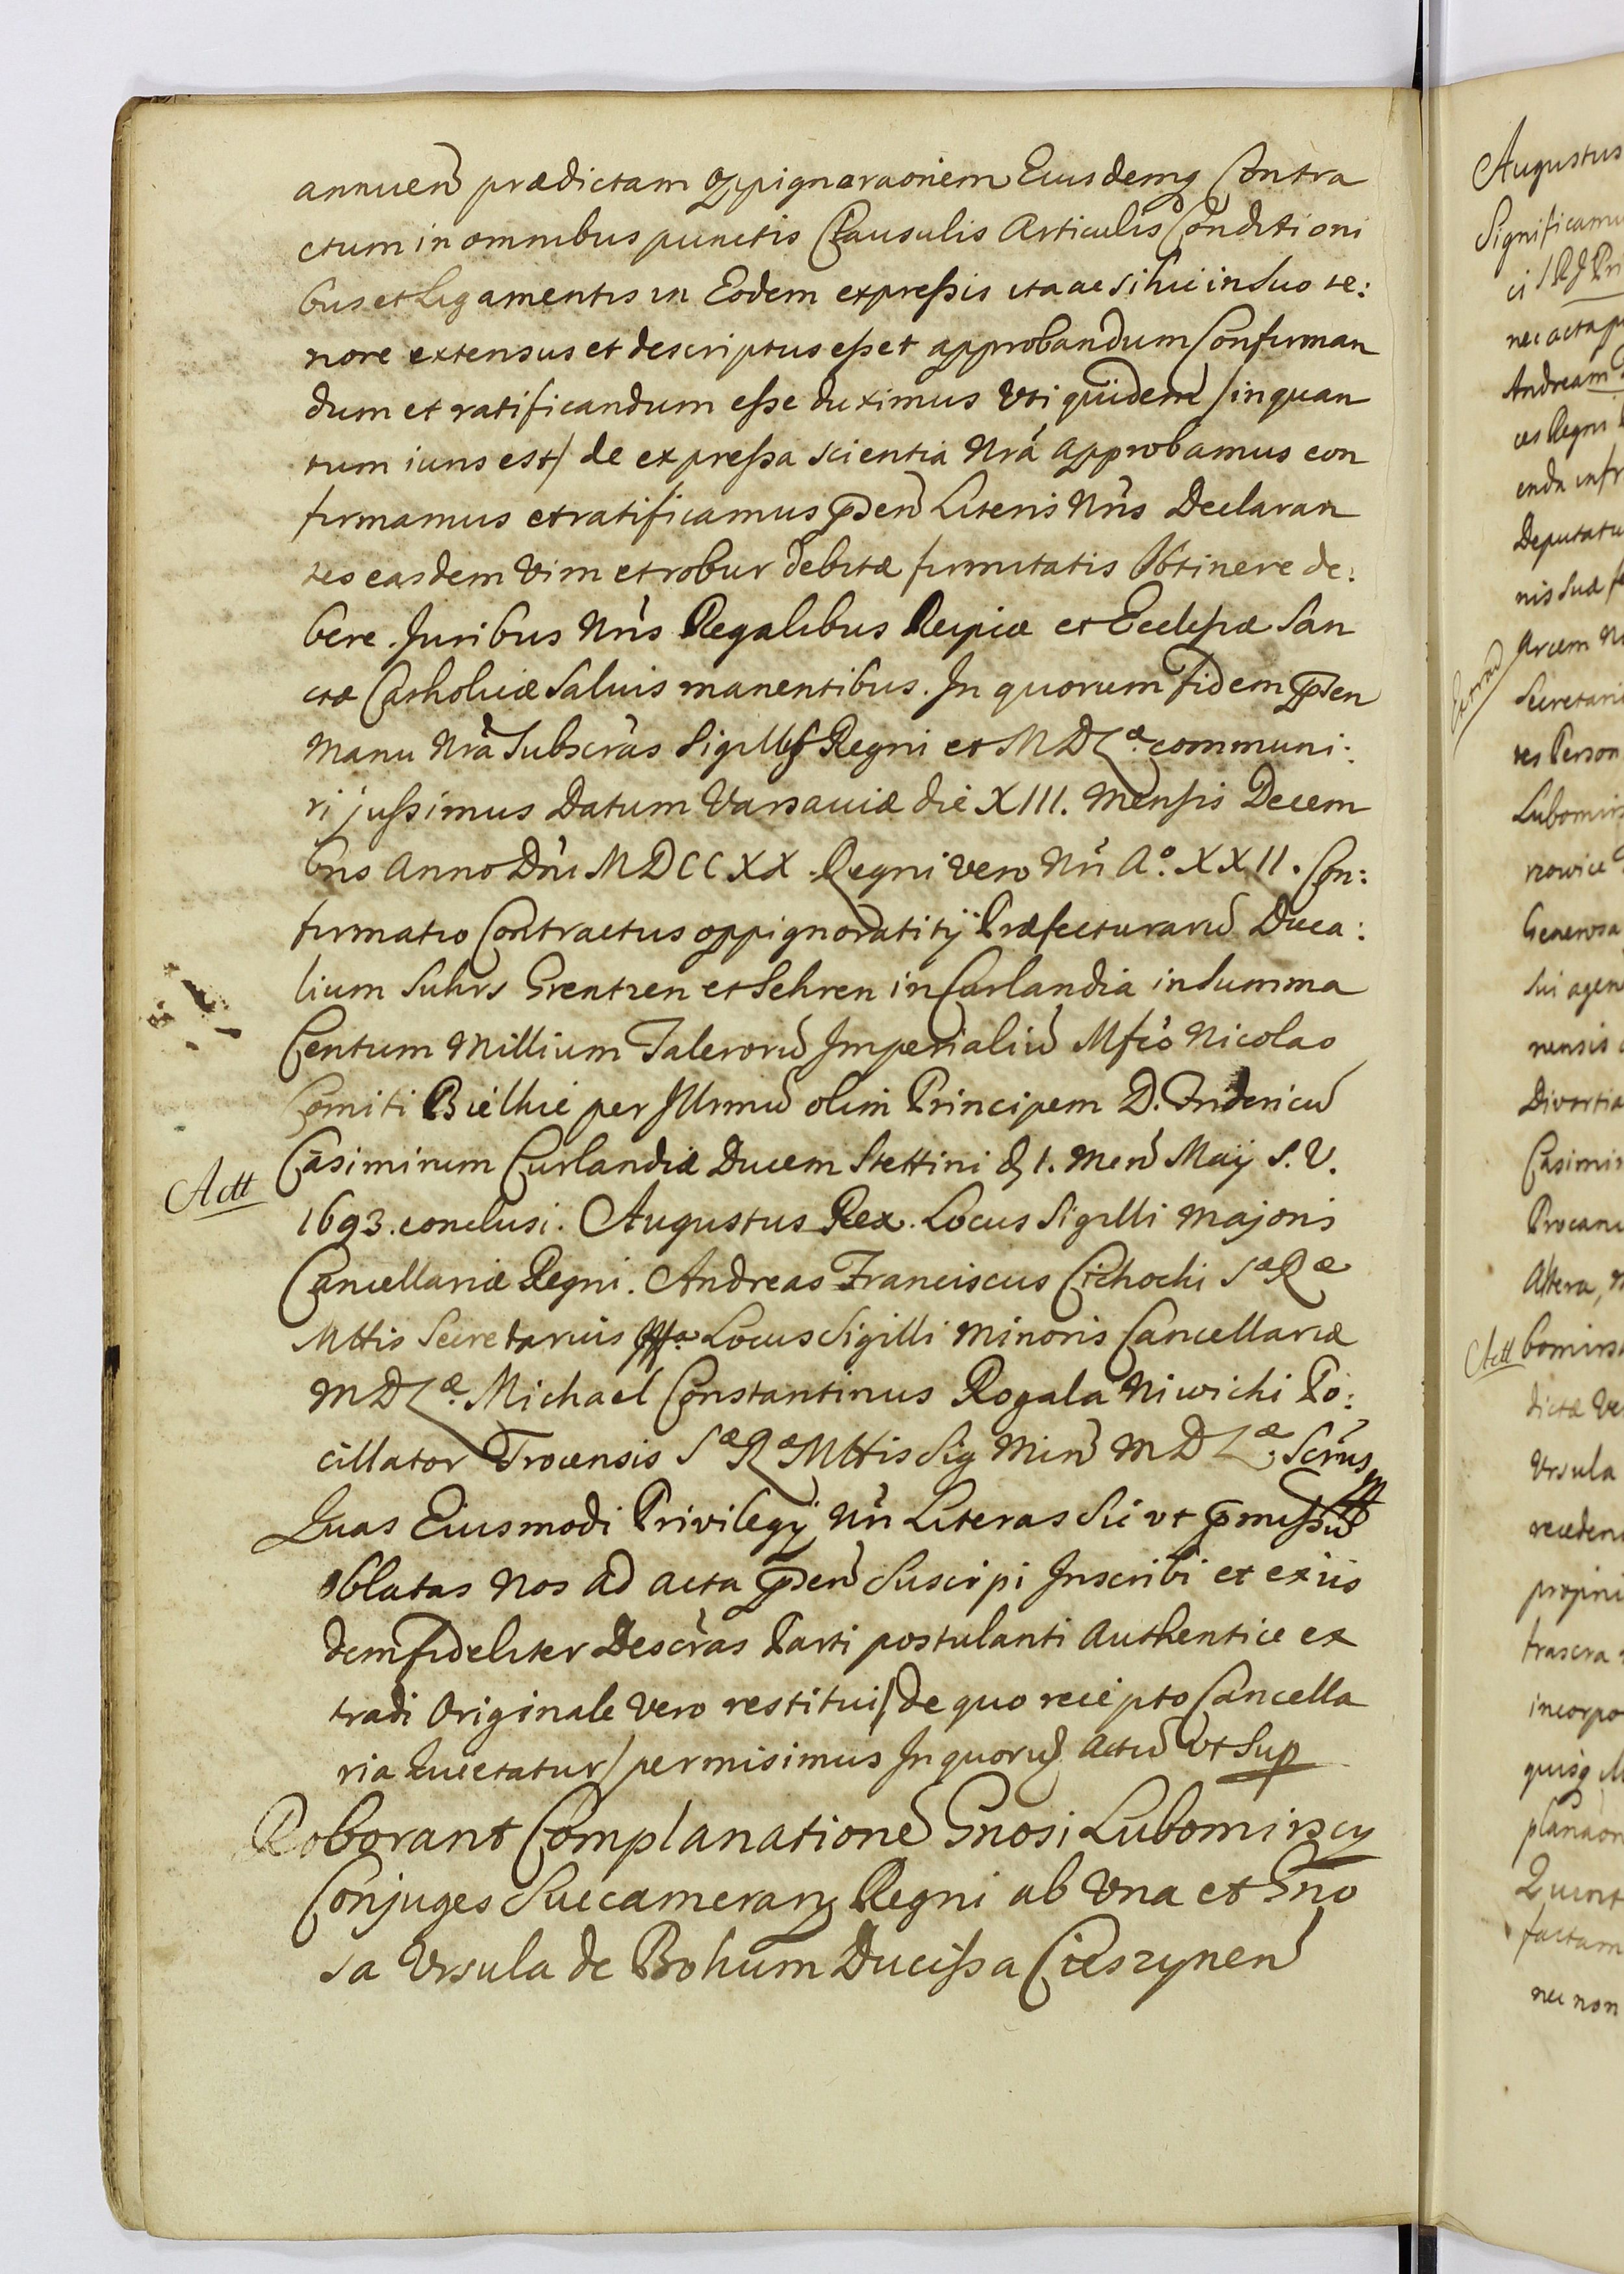 annuen prædictam oppignoraonem Eiusdemq Contra
ctum in omnibus punctis Clausulis Articulis Conditioni
bus et Ligamentis in Eodem expreſsis ita ac si hic in Suo te:
nore extensus et descriptus eſset approbandum Confirman
dum et ratificandum eſse duximus Vti quidem /in quan
tum iuris est/ de expreſsa scientia Nrã approbamus con
firmamus et ratificamus pñsen Literis Nris Declaran
tes easdem Vim et robur debitæ firmitatis Obtinere de:
bere. Juribus Nris Regalibus Reipiæ et Eccleſiæ San
ctæ Catholicæ Salvis manentibus. In quorum fidem pñsen
Manu Nrã Subscras Sigillis Regni et M D L æ communi:
ri juſsimus Datum Varsaviæ die XIII. Mensis Decem
bris Anno Dñi MDCCXX. Regni vero Nri Aº. XXII. Con:
firmatio Contractus oppignoratitij Præfecturarũ Duca:
lium Suhrs Grentzen et Sehren in Curlandia in Summa
Centum Millium Talerorũ Imperialiũ Mfco Nicolao
Comiti Bielhie per Illrmũ olim Principem D. Fridericũ
Casimirum Curlandiæ Ducem Stettini d 1. Men Maij S. V.
Actt
1693. conclusi. Augustus Rex. Locus Sigilli Majoris
Cancellariæ Regni. Andreas Franciscus Cichocki Sæ Ræ
Mttis Secretarius Locus Sigilli Minoris Cancellariæ
M D L æ. Michael Constantinus Rogala Niwicki Po:
cillator Trocensis Sæ Ræ Mttis Sig Min M D L æ Scrius
Quas Eiusmodi Privilegij Nri Literas Sic vt pmiſsũ
oblatas Nos ad acta pñsen Suscipi Inscribi et ex iis
dem fideliter Descras Parti postulanti Authentice ex
tradi Originale vero restitui /de quo recepto Cancella
ria quietatur/ permisimus In quorũ Actũ Vt Sup
Roborant Complanatione Gnosi Lubomirscy
Conjuges Succamerarij Regni ab Vna et Gno
sa Vrsula de Bohum Duciſsa Cieszynen
Augustus
Significamus
nec acta
Andream
ces Regni
Deputatu
nis Suæ
Arcem
Secretari
tes Person
Lubomirs
Generosa
Sui agen
nensis
Divortia
Casimir
Procanc
Altera,
Actt
bomirs
dictæ Ve
Vrsula
recedend
propri
incorpo
Quint
factam
nec non